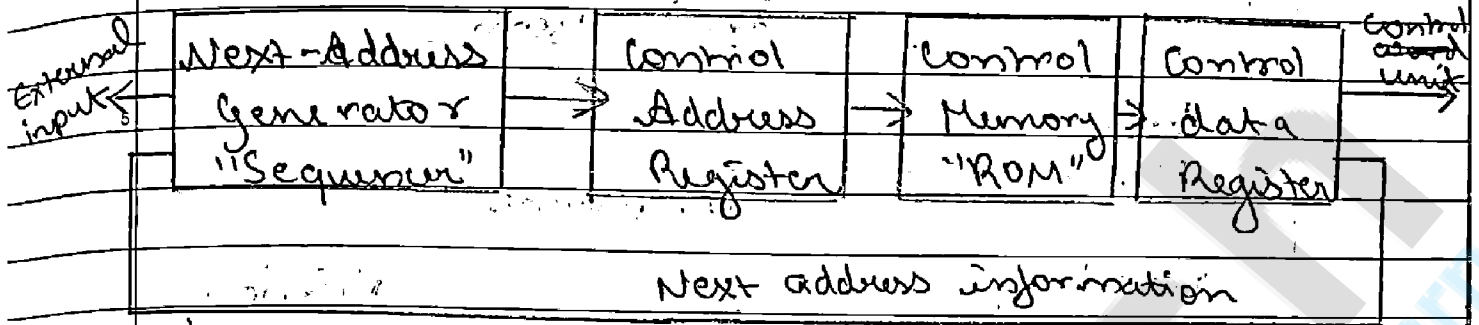 External input
Next-Address Generator "Sequencer"
Control Address Register
Control Memory "ROM"
Control data Register
Control unit
Next address information